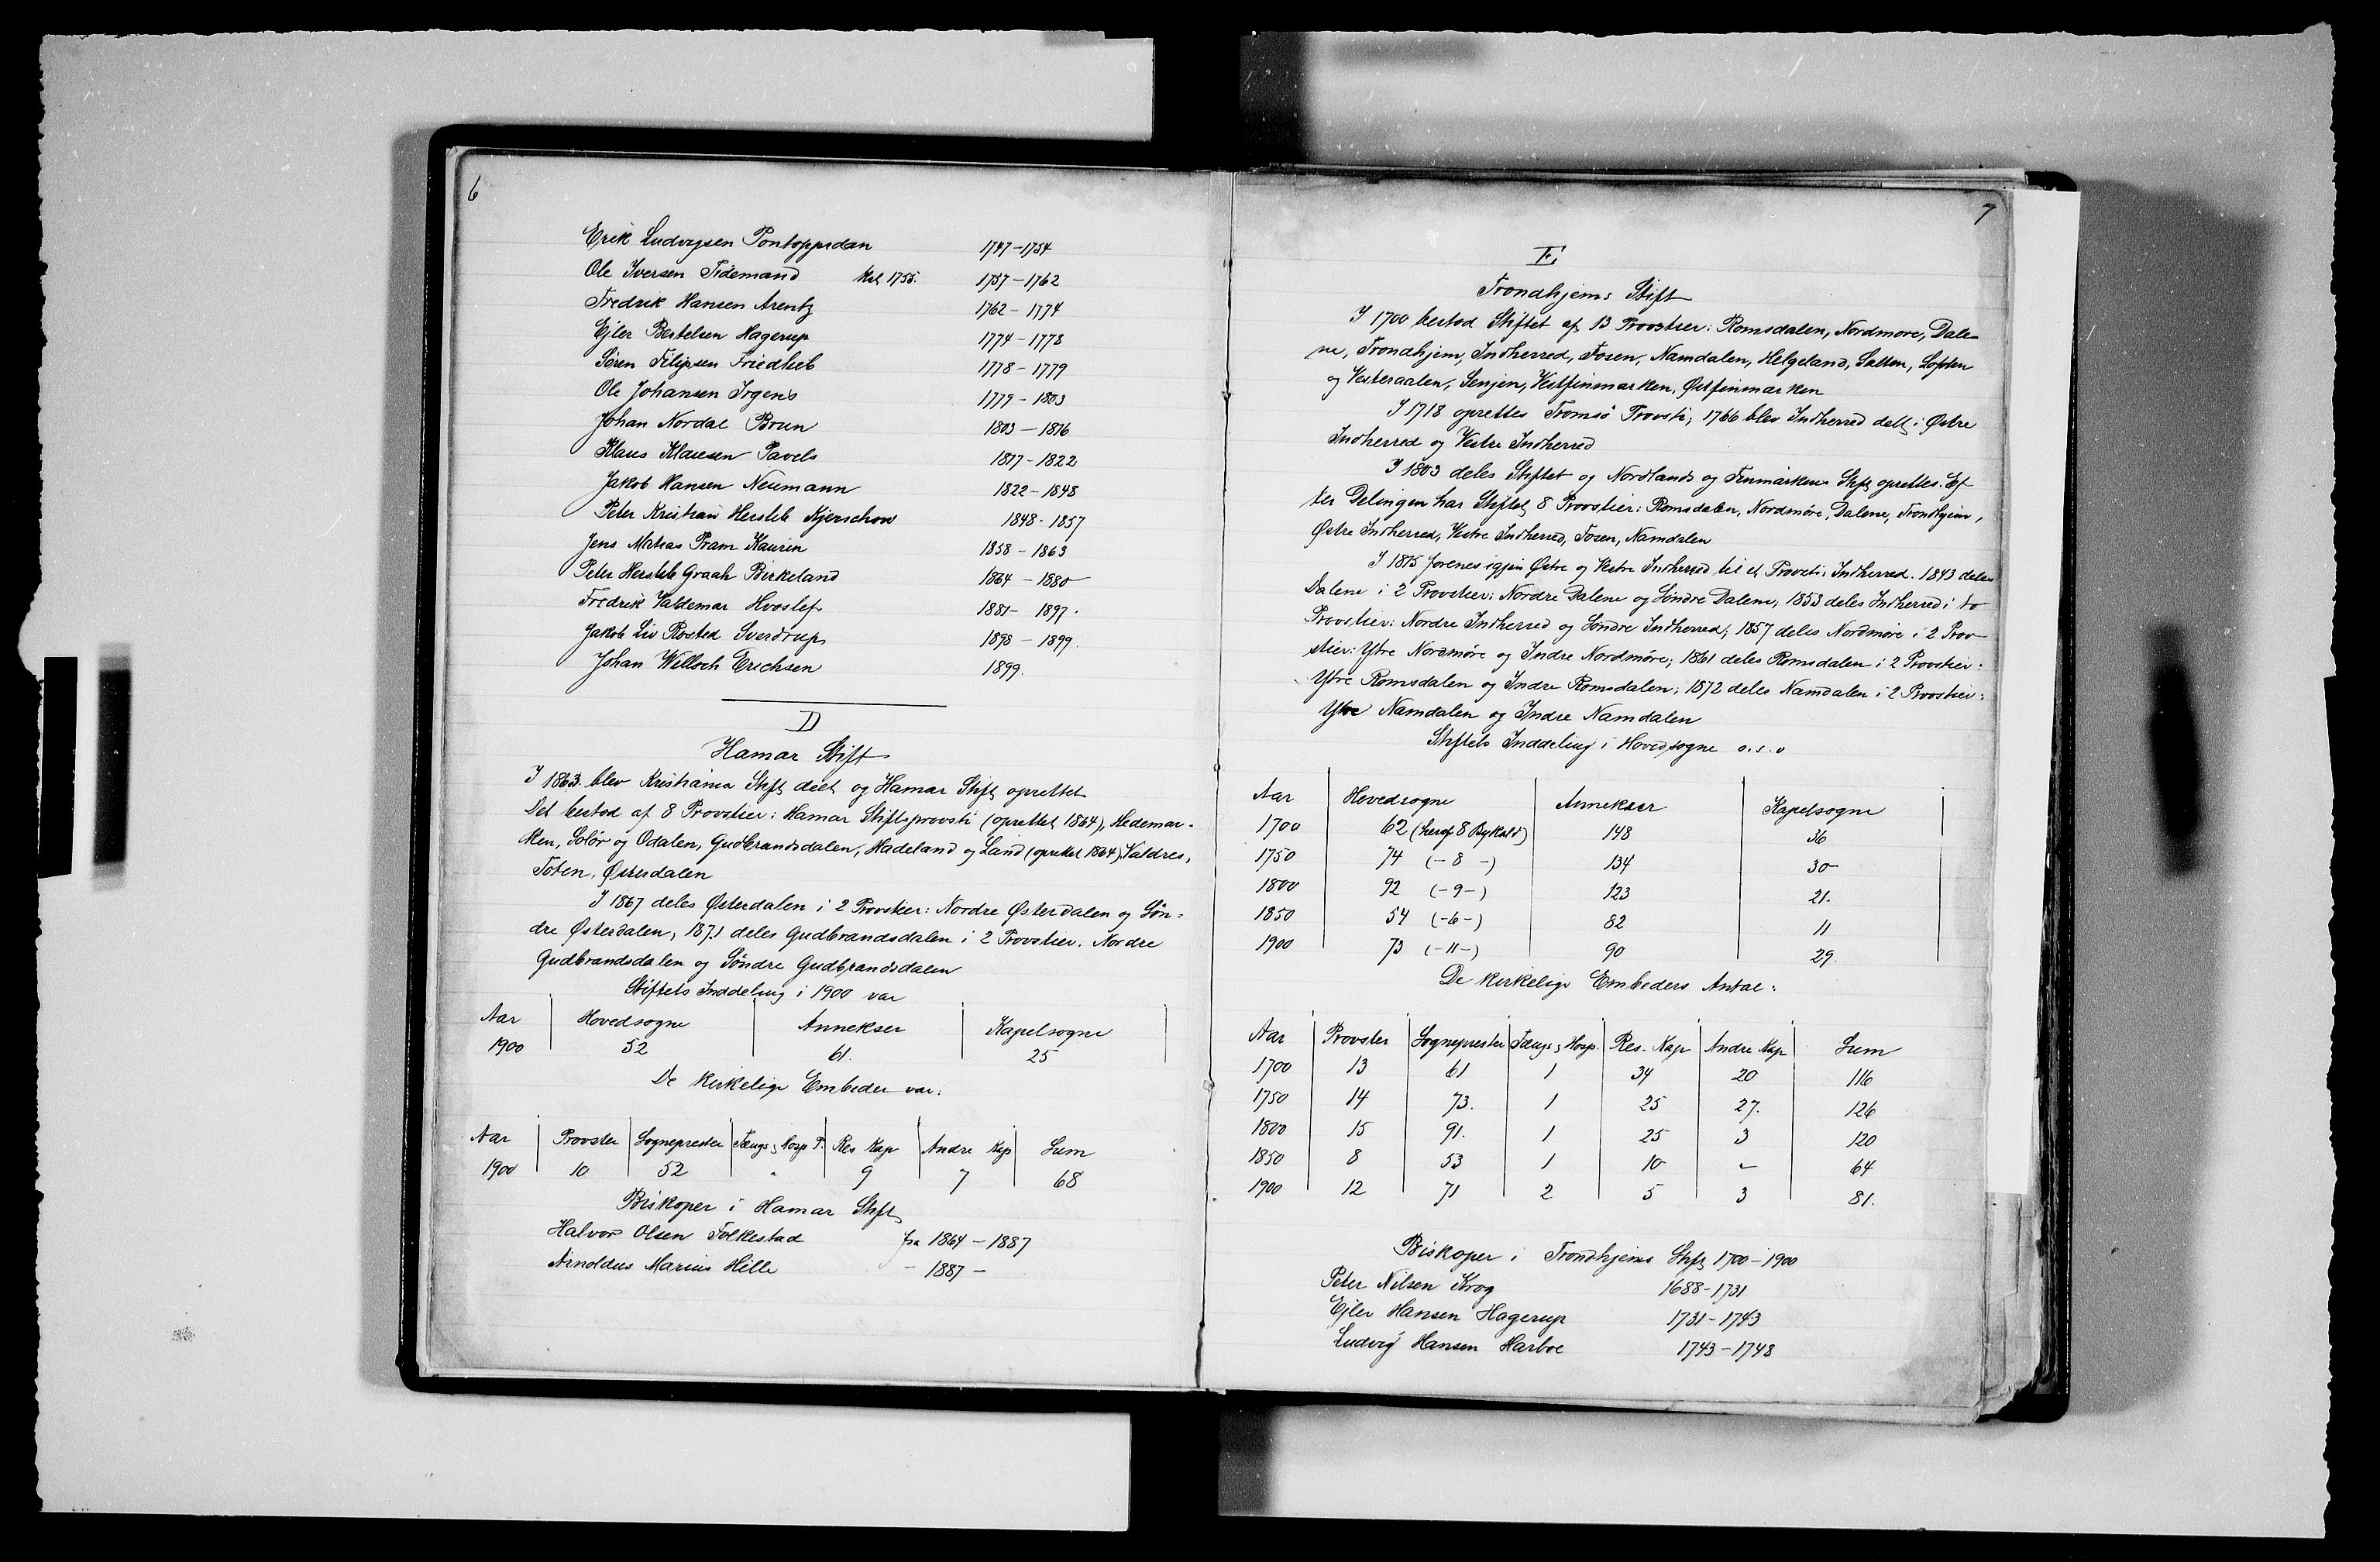 6
Erik Ludvigsen Pontoppidan 1747-1754
Ole Iversen Tidemand kst 1755. 1757-1762
Fredrik Hansen Arentz 1762-1774
Ejler Bertelsen Hagerup 1774-1778
Søren Filipsen Friedlieb 1778-1779
Ole Johansen Irgens 1779-1803
Johan Nordal Brun 1803-1816
Klaus Klausen Pavels 1817-1822
Jakob Hansen Neumann 1822-1848
Peter Kristian Hersleb Kjerschow 1848-1857
Jens Matias Pram Kaurin 1858-1863
Peter Hersleb Graah Birkeland 1864-1880
Fredrik Valdemar Hvoslef 1881-1897.
Jakob Liv Rosted Sverdrup 1898-1899.
Johan Willoch Erichsen 1899.
D
Hamar Stift
I 1863. blev Kristiania Stift delt og Hamar Stift oprettet
Det bestod af 8 Provstier: Hamar Stiftsprovsti (oprettet 1864), Hedemar-
ken, Solør og Odalen, Gudbrandsdalen, Hadeland og Land (oprettet 1864), Valdres,
Toten, Østerdalen
I 1867 deles Østerdalen i 2 Provstier: Nordre Østerdalen og Søn-
dre Østerdalen, 1871 deles Gudbrandsdalen i 2 Provstier. Nordre
Gudbrandsdalen og Søndre Gudbrandsdalen
Stiftets Inddeling i 1900 var
Aar Hovedsogne Annekser Kapelsogne
1900 52 61. 25
De kirkelige Embeder var:
Aar Provster Sogneprester Fængs, Hosp P. Res Kap Andre Kap Sum
1900 10 52 " 9 7 68
Biskoper i Hamar Stift
Halvor Olsen Folkestad fra 1864-1887
Arnoldus Marius Hille - 1887-
7
E
Trondhjems Stift
I 1700 bestod Stiftet af 13 Provstier: Romsdalen, Nordmøre, Dale-
ne, Trondhjem, Indherred, Fosen, Namdalen, Helgeland, Salten, Lofoten
og Vesteraalen, Senjen, Vestfinmarken, Østfinmarken
I 1718 oprettes Tromsö Provsti; 1766 blev Indherred delt i Østre
Indherred og Vestre Indherred
I 1803 deles Stiftet og Nordlands og Finmarkens Stift oprettes. Ef
ter Delingen har Stiftet 8 Provstier: Romsdalen, Nordmöre, Dalene, Trondhjem,
Østre Indherred, Vestre Indherred, Fosen, Namdalen
I 1815 forenes igjen Østre og Vestre Indherred til et Provsti: Indherred. 1843 deles
Dalene i 2 Provstier: Nordre Dalene og Søndre Dalene, 1853 deles Indherred i to
Provstier: Nordre Indherred og Søndre Indherred, 1857 deles Nordmöre i 2 Prov-
stier: Ytre Nordmöre og Indre Nordmöre; 1861 deles Romsdalen i 2 Provstier:
Ytre Romsdalen og Indre Romsdalen; 1872 deles Namdalen i 2 Provstier:
Ytre Namdalen og Indre Namdalen
Stiftets Inddeling i Hovedsogne o.s.v
Aar Hovedsogne Annekser Kapelsogne
1700 62 (heraf 8 Bykald) 148 36
1750 74 (-8-) 134 30
1800 92 (-9-) 123 21.
1850 54 (-6-) 82 11
1900 73 (-11-) 90 29.
De kirkelige Embeders Antal:
Aar Provster Sogneprester Fængs, Hosp. Res. Kap Andre Kap Sum
1700 13 61 1 34 20 116
1750 14 73. 1 25 27. 126
1800 15 91. 1 25 3 120
1850 8 53 1 10 - 64
1900 12 71 2 5 3 81.
Biskoper i Trondhjems Stift 1700-1900
Peter Nilsen Krog 1688-1731
Ejler Hansen Hagerup 1731-1743
Ludvig Hansen Harboe 1743-1748